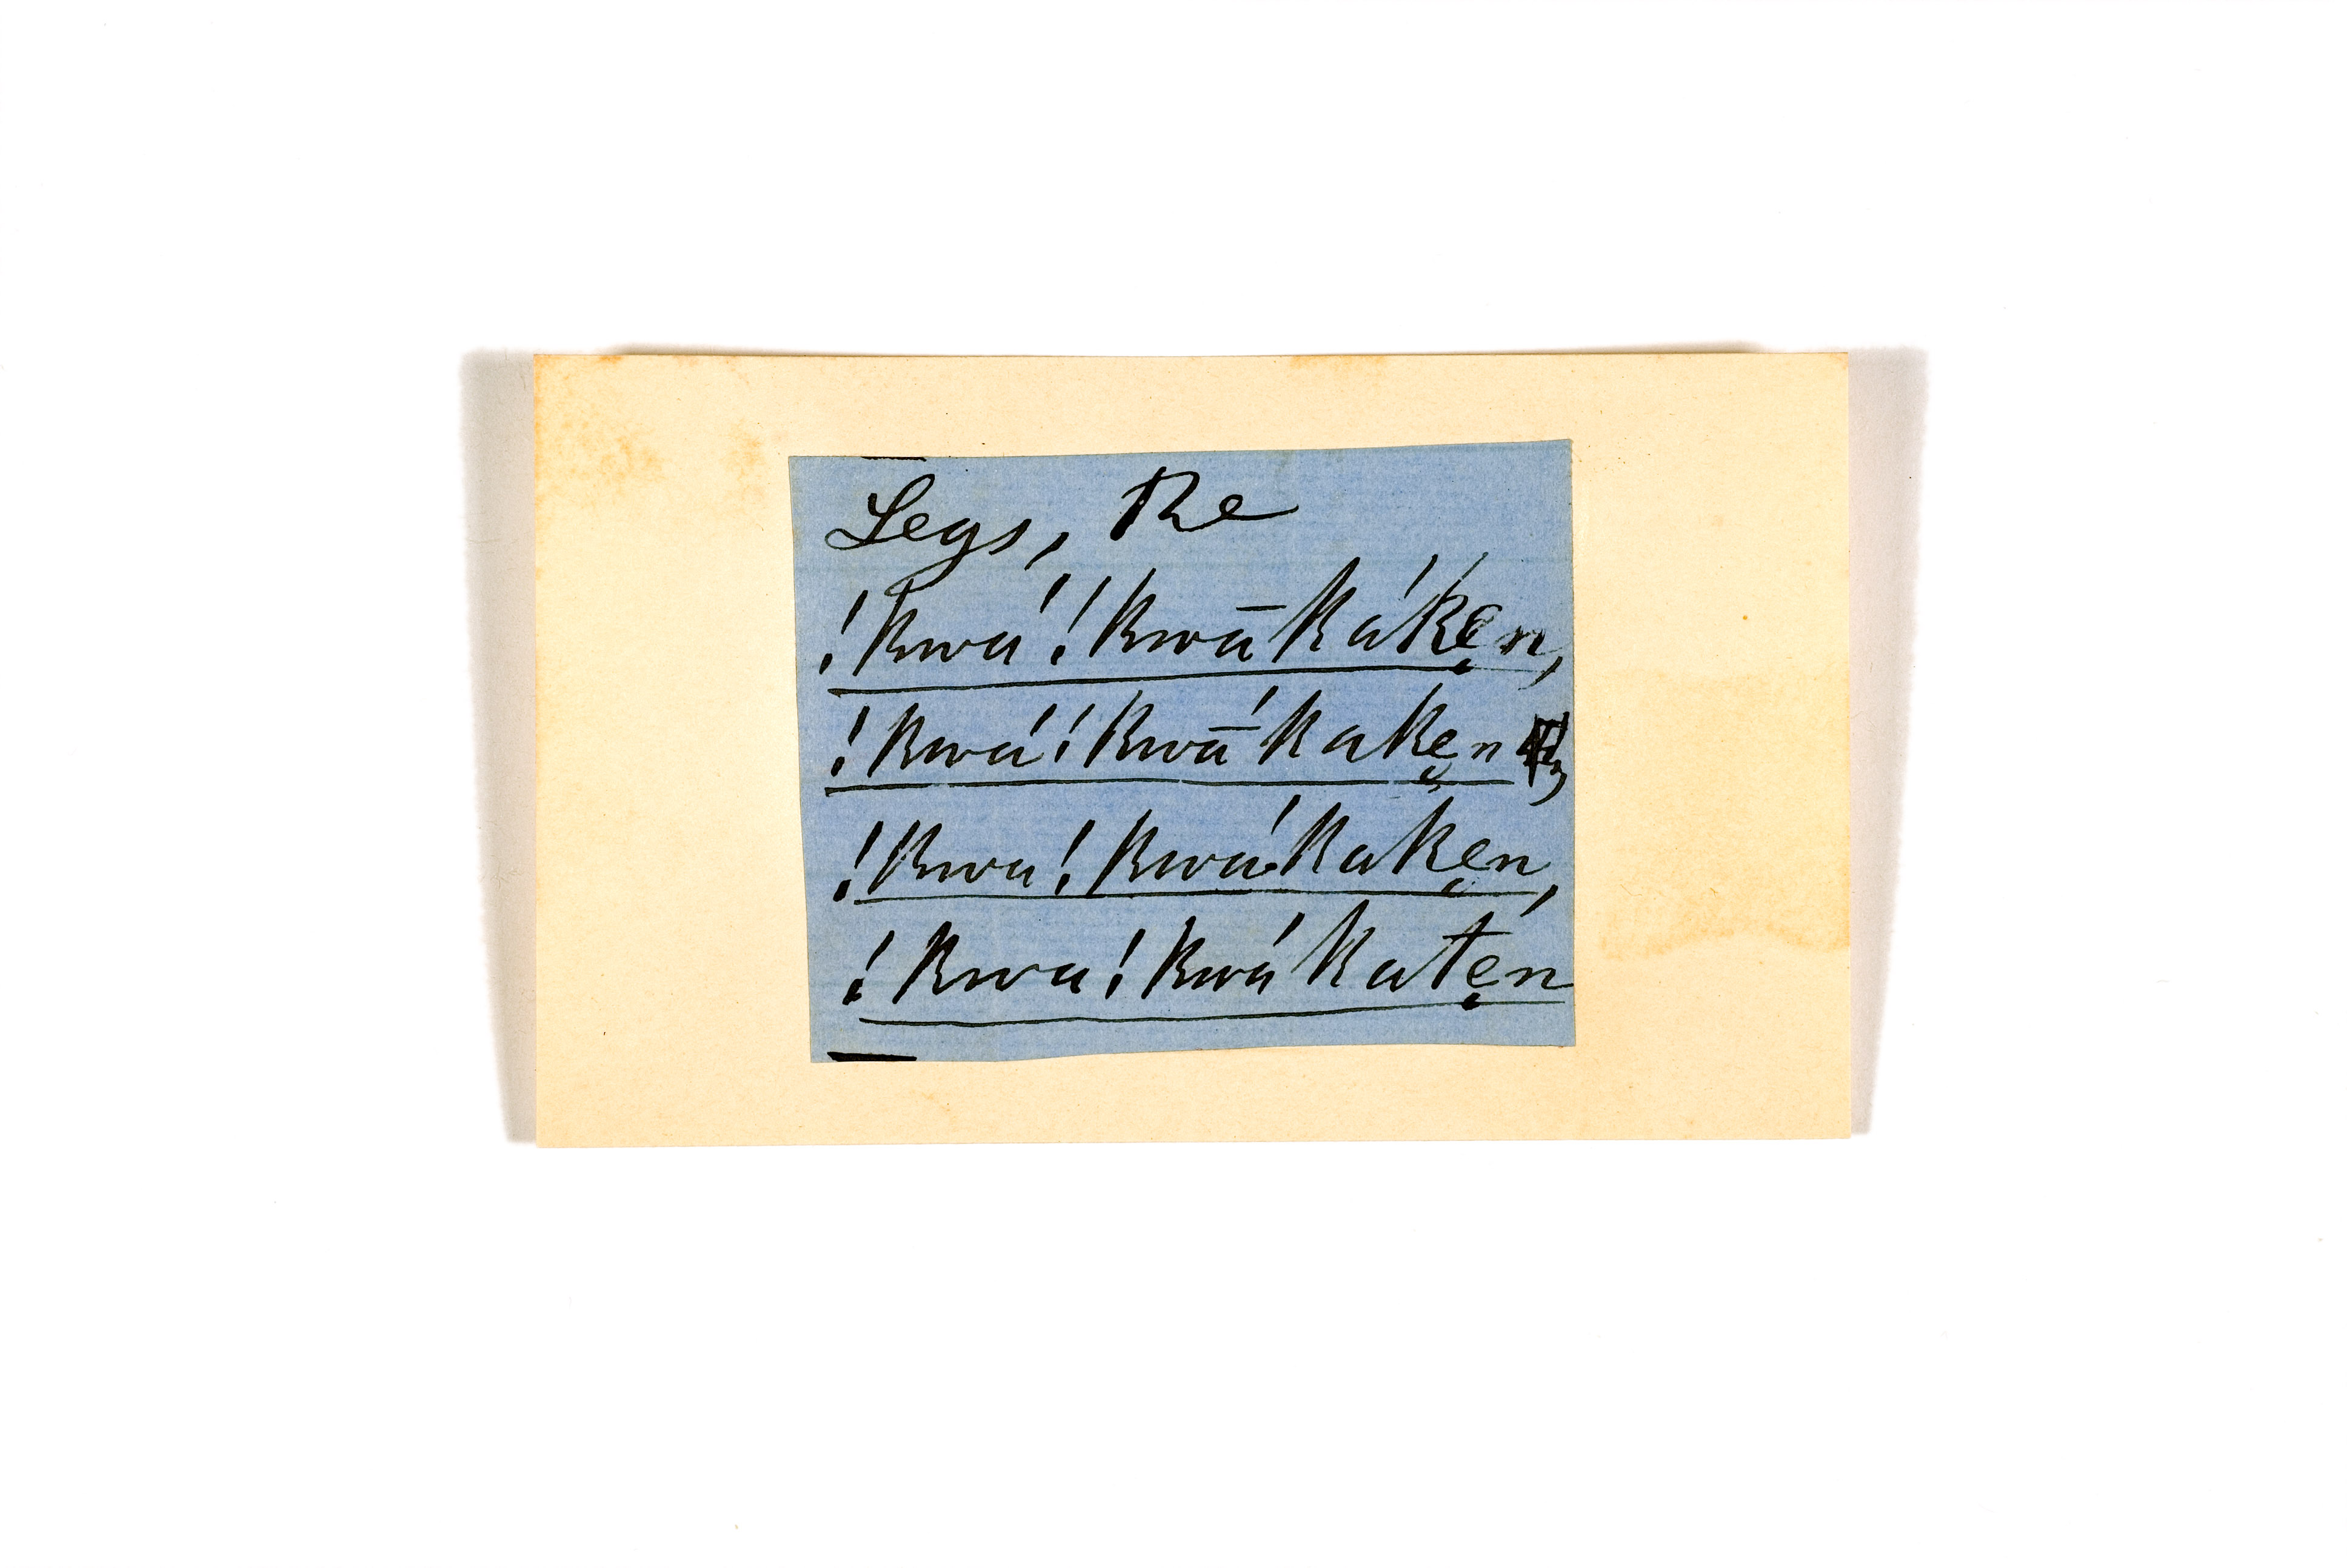 Legs, the
!kwá!kwā káken̥,
!kwá!kwā́ kakẹn,
!kwa!kwá kakẹn,
!kwa!kwá katẹn